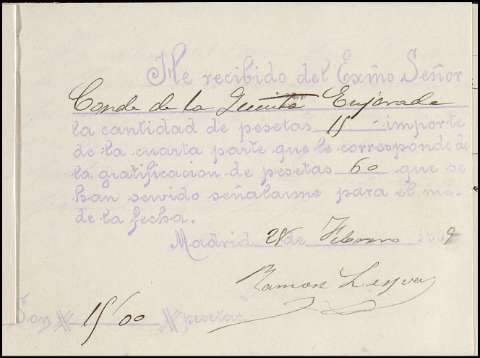 He recibido del Exmo Señor
Conde de la Quinta Enjarada
la cantidad de pesetas 15 importe
de la cuarta parte que le corresponde de
la gratificacion de pesetas 60 que se
han servido señalarme para el mes
de la fecha.
Madrid 28 de Febrero 9
Ramon
Son # 15'00 # pesetas